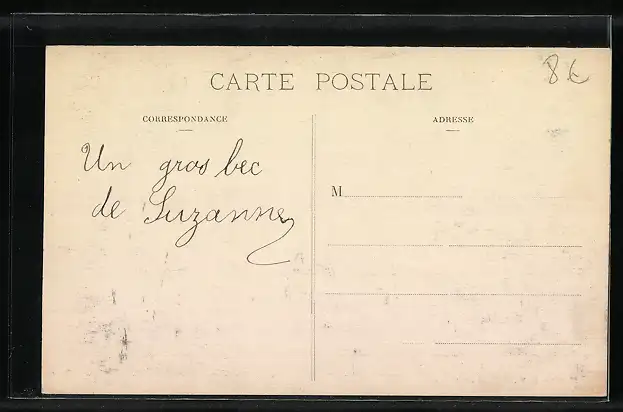 CARTE POSTALE
8€
CORRESPONDANCE
ADRESSE
Un gros bec
de Suzanne
M